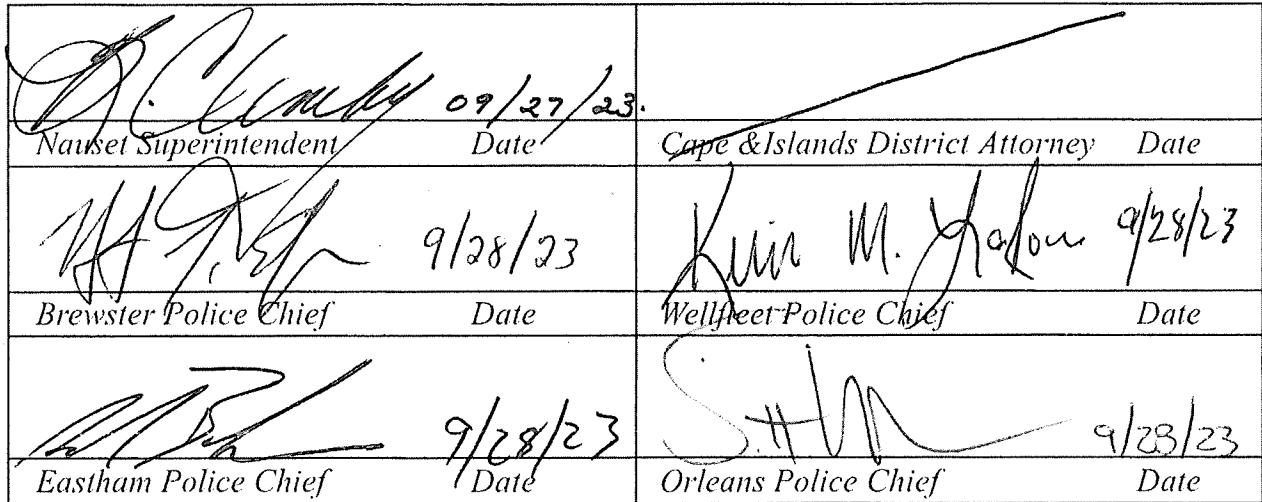 09/27/23.
Nauset Superintendent Date
Cape &Islands District Attorney Date
9/28/23
Brewster Police Chief Date
M. 9/28/23
Wellfleet Police Chief Date
9/28/23
Eastham Police Chief Date
9/28/23
Orleans Police Chief Date